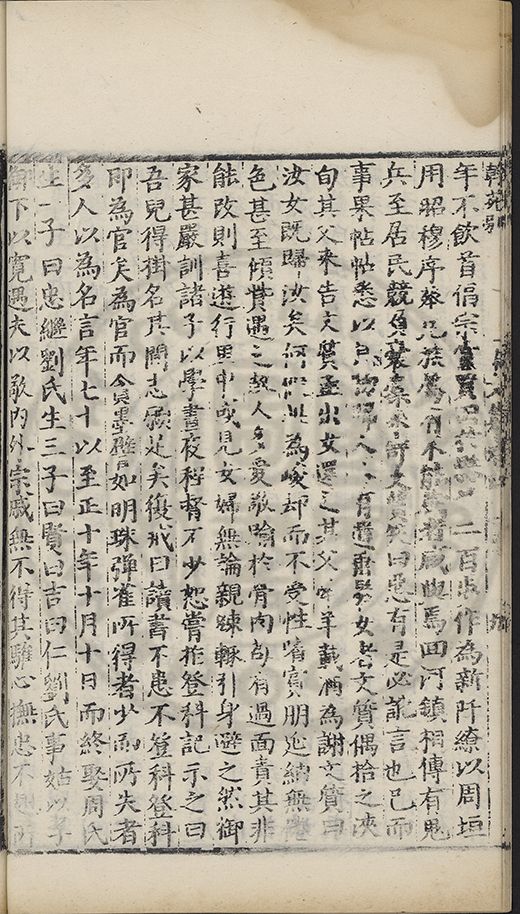 年不飲首倡宗二百步作為新阡繚以周垣
用昭穆序葬凡族為有不能葬者咸與焉四河鎮相傳有鬼
兵至居民競負文質笑曰惡有是必訛言也已而
事果帖帖悉以女名文質偶拾之浹
旬其父來告文質亟出女還之其父羊載酒為謝文質曰
汝女既歸汝矣何為峻却而不受性賓朋延納無
色甚至傾貲遇之熱人多愛敬踰於骨肉苟有過面責其非
能改則喜遊行里中或見女婦無論親疎輒引身避之然御
家甚嚴訓諸子以學晝夜程督不少恕嘗指登科記示之曰
吾兒得掛名其間志願足矣復戒曰讀書不患不登科登科
即為官矣為官而貪墨譬如明珠彈雀所得者少而所失者
多人以為名言年七十以至正十年十月十日而終娶周氏
生一子曰忠繼劉氏生三子曰賢曰吉曰仁劉氏事姑以孝
御下以寬遇夫以敬內外宗戚無不得其驩心撫忠不